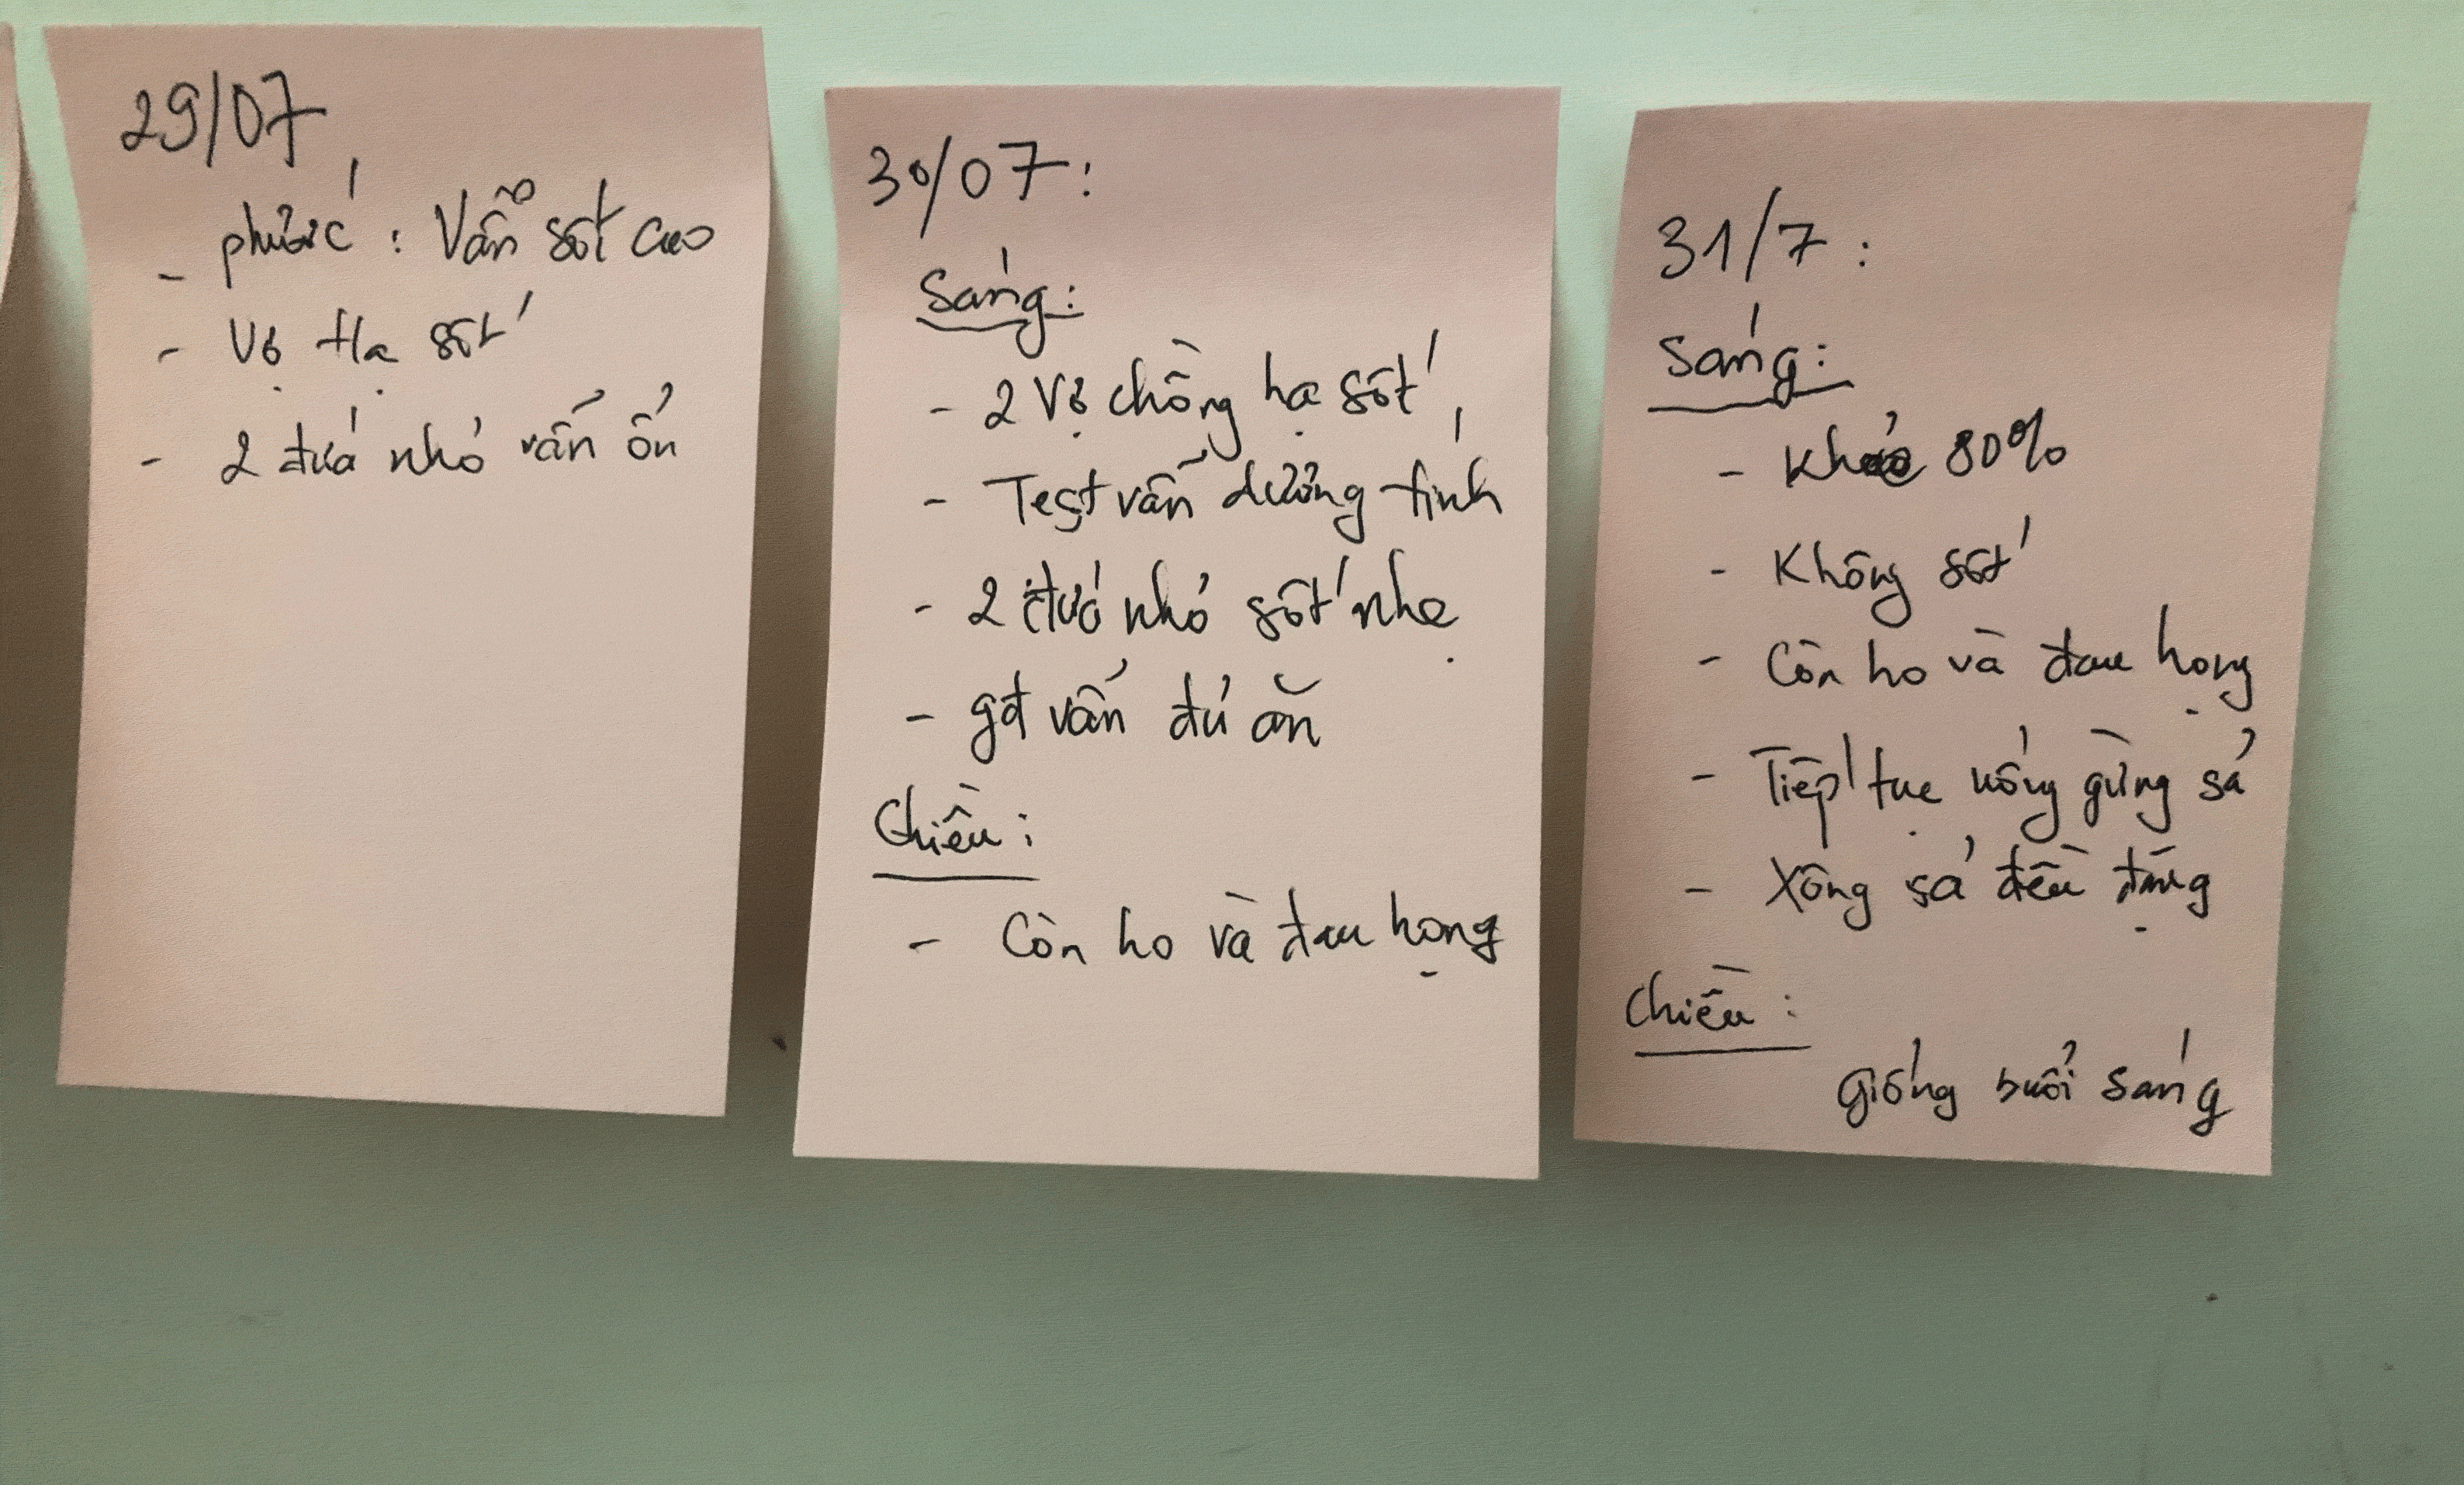 29/07
- Phước : Vẫn sốt cao
- Vợ Hạ sốt
- 2 đứa nhỏ vẫn ổn
30/07:
Sáng:
- 2 Vợ chồng hạ sốt
- Test vẫn dương tính
- 2 đứa nhỏ sốt nhẹ
- gđ vẫn đủ ăn
Chiều:
- Còn ho và đau họng
31/7:
Sáng:
- Khỏe 80%
- Không sốt
- Còn ho và đau họng
- Tiếp tục uống gừng sả
- Xông sả đều đặng
Chiều:
giống buổi sáng